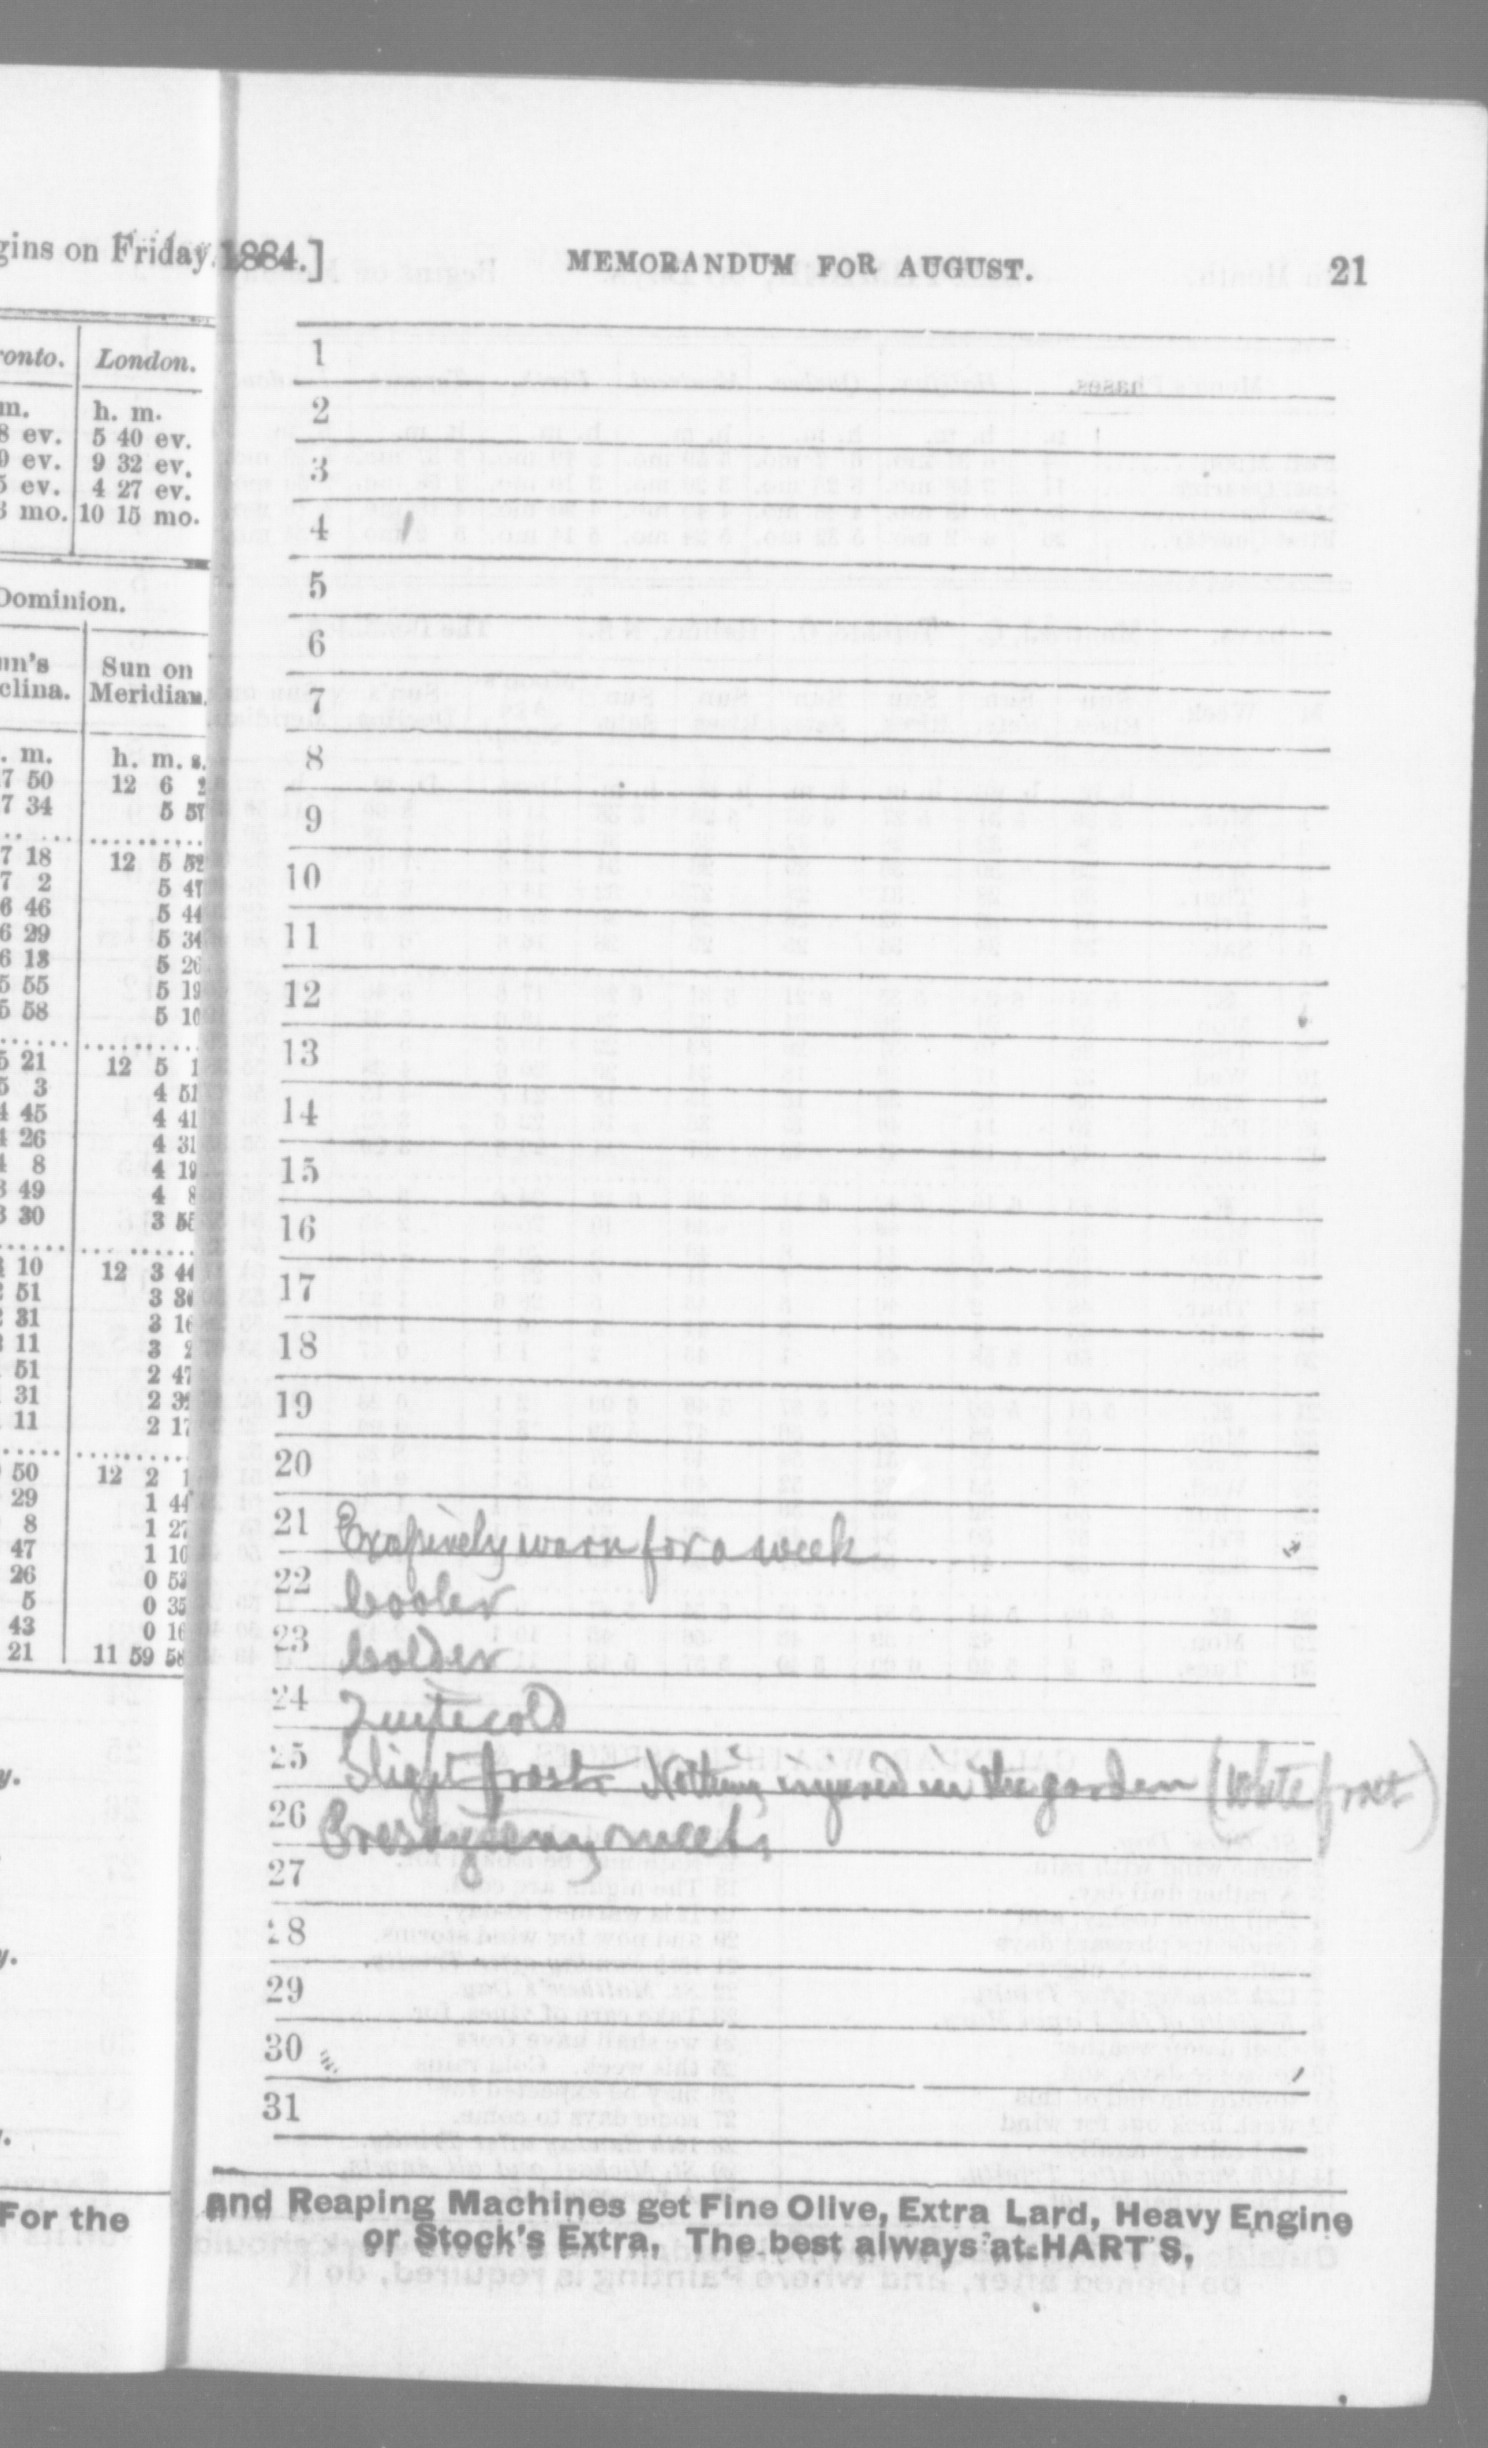 gins on Friday, 1884.]
MEMORANDUM FOR AUGUST.
21
ronto. London.
m. h. m.
8 ev. 5 40 ev.
9 ev. 9 32 ev.
5 ev. 4 27 ev.
3 mo. 10 15 mo.
Dominion.
un's Sun on
clina. Meridian.
. m. h. m. s.
7 50 12 6 2
7 34 5 57
7 18 12 5 52
7 2 5 47
6 46 5 44
6 29 5 34
6 13 5 26
5 55 5 19
5 58 5 10
5 21 12 5 1
5 3 4 51
4 45 4 41
4 26 4 31
4 8 4 19
3 49 4 8
3 30 3 55
10 12 3 44
51 3 30
31 3 16
11 3 2
51 2 47
31 2 32
11 2 17
50 12 2 1
29 1 44
8 1 27
47 1 10
26 0 53
5 0 35
43 0 16
21 11 59 58
y.
y.
For the
1
2
3
4
5
6
7
8
9
10
11
12
13
14
15
16
17
18
19
20
21 Exessively warm for a week
22 Cooler
23 Colder
24 Quite cold
25 Slight frost Nothing injured in the garden (White frost)
26 Presbytery meets
27
28
29
30
31
and Reaping Machines get Fine Olive, Extra Lard, Heavy Engine
or Stock's Extra, The best always at HART'S,